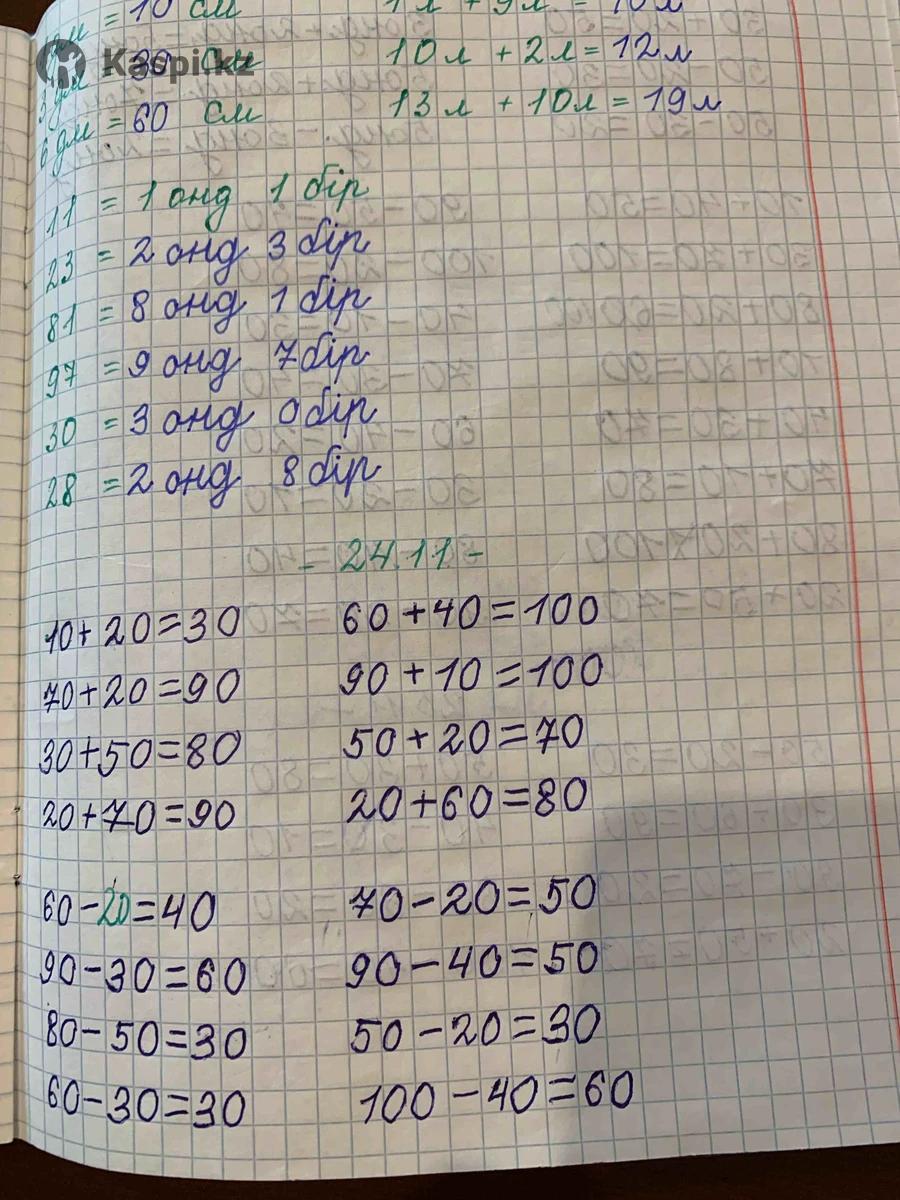 = 10 см 1л + 9л = 10л
3 дм = 30 см 10л + 2л = 12л
6 дм = 60 см 13л + 10л = 19л
Kaspi.kz
11 = 1 онд 1 бір
23 = 2 онд 3 бір
81 = 8 онд 1 бір
97 = 9 онд 7 бір
30 = 3 онд 0 бір
28 = 2 онд 8 бір
- 24.11 -
10+20=30 60+40=100
70+20=90 90+10=100
30+50=80 50+20=70
20+70=90 20+60=80
60-20=40 70-20=50
90-30=60 90-40=50
80-50=30 50-20=30
60-30=30 100-40=60